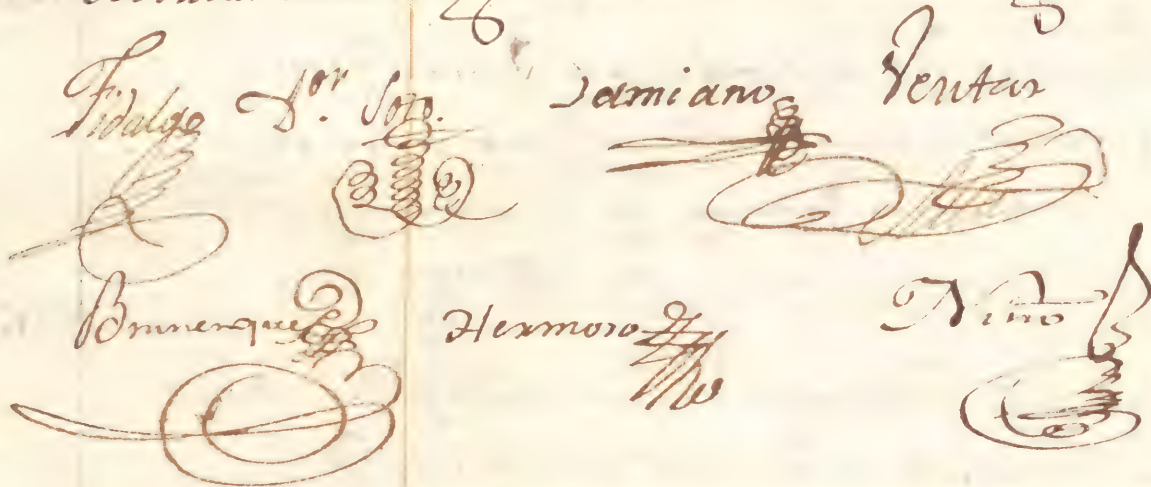 Fidalgo Dor. Soto. Damiano Ventas
Brunenque Hermoso Niño